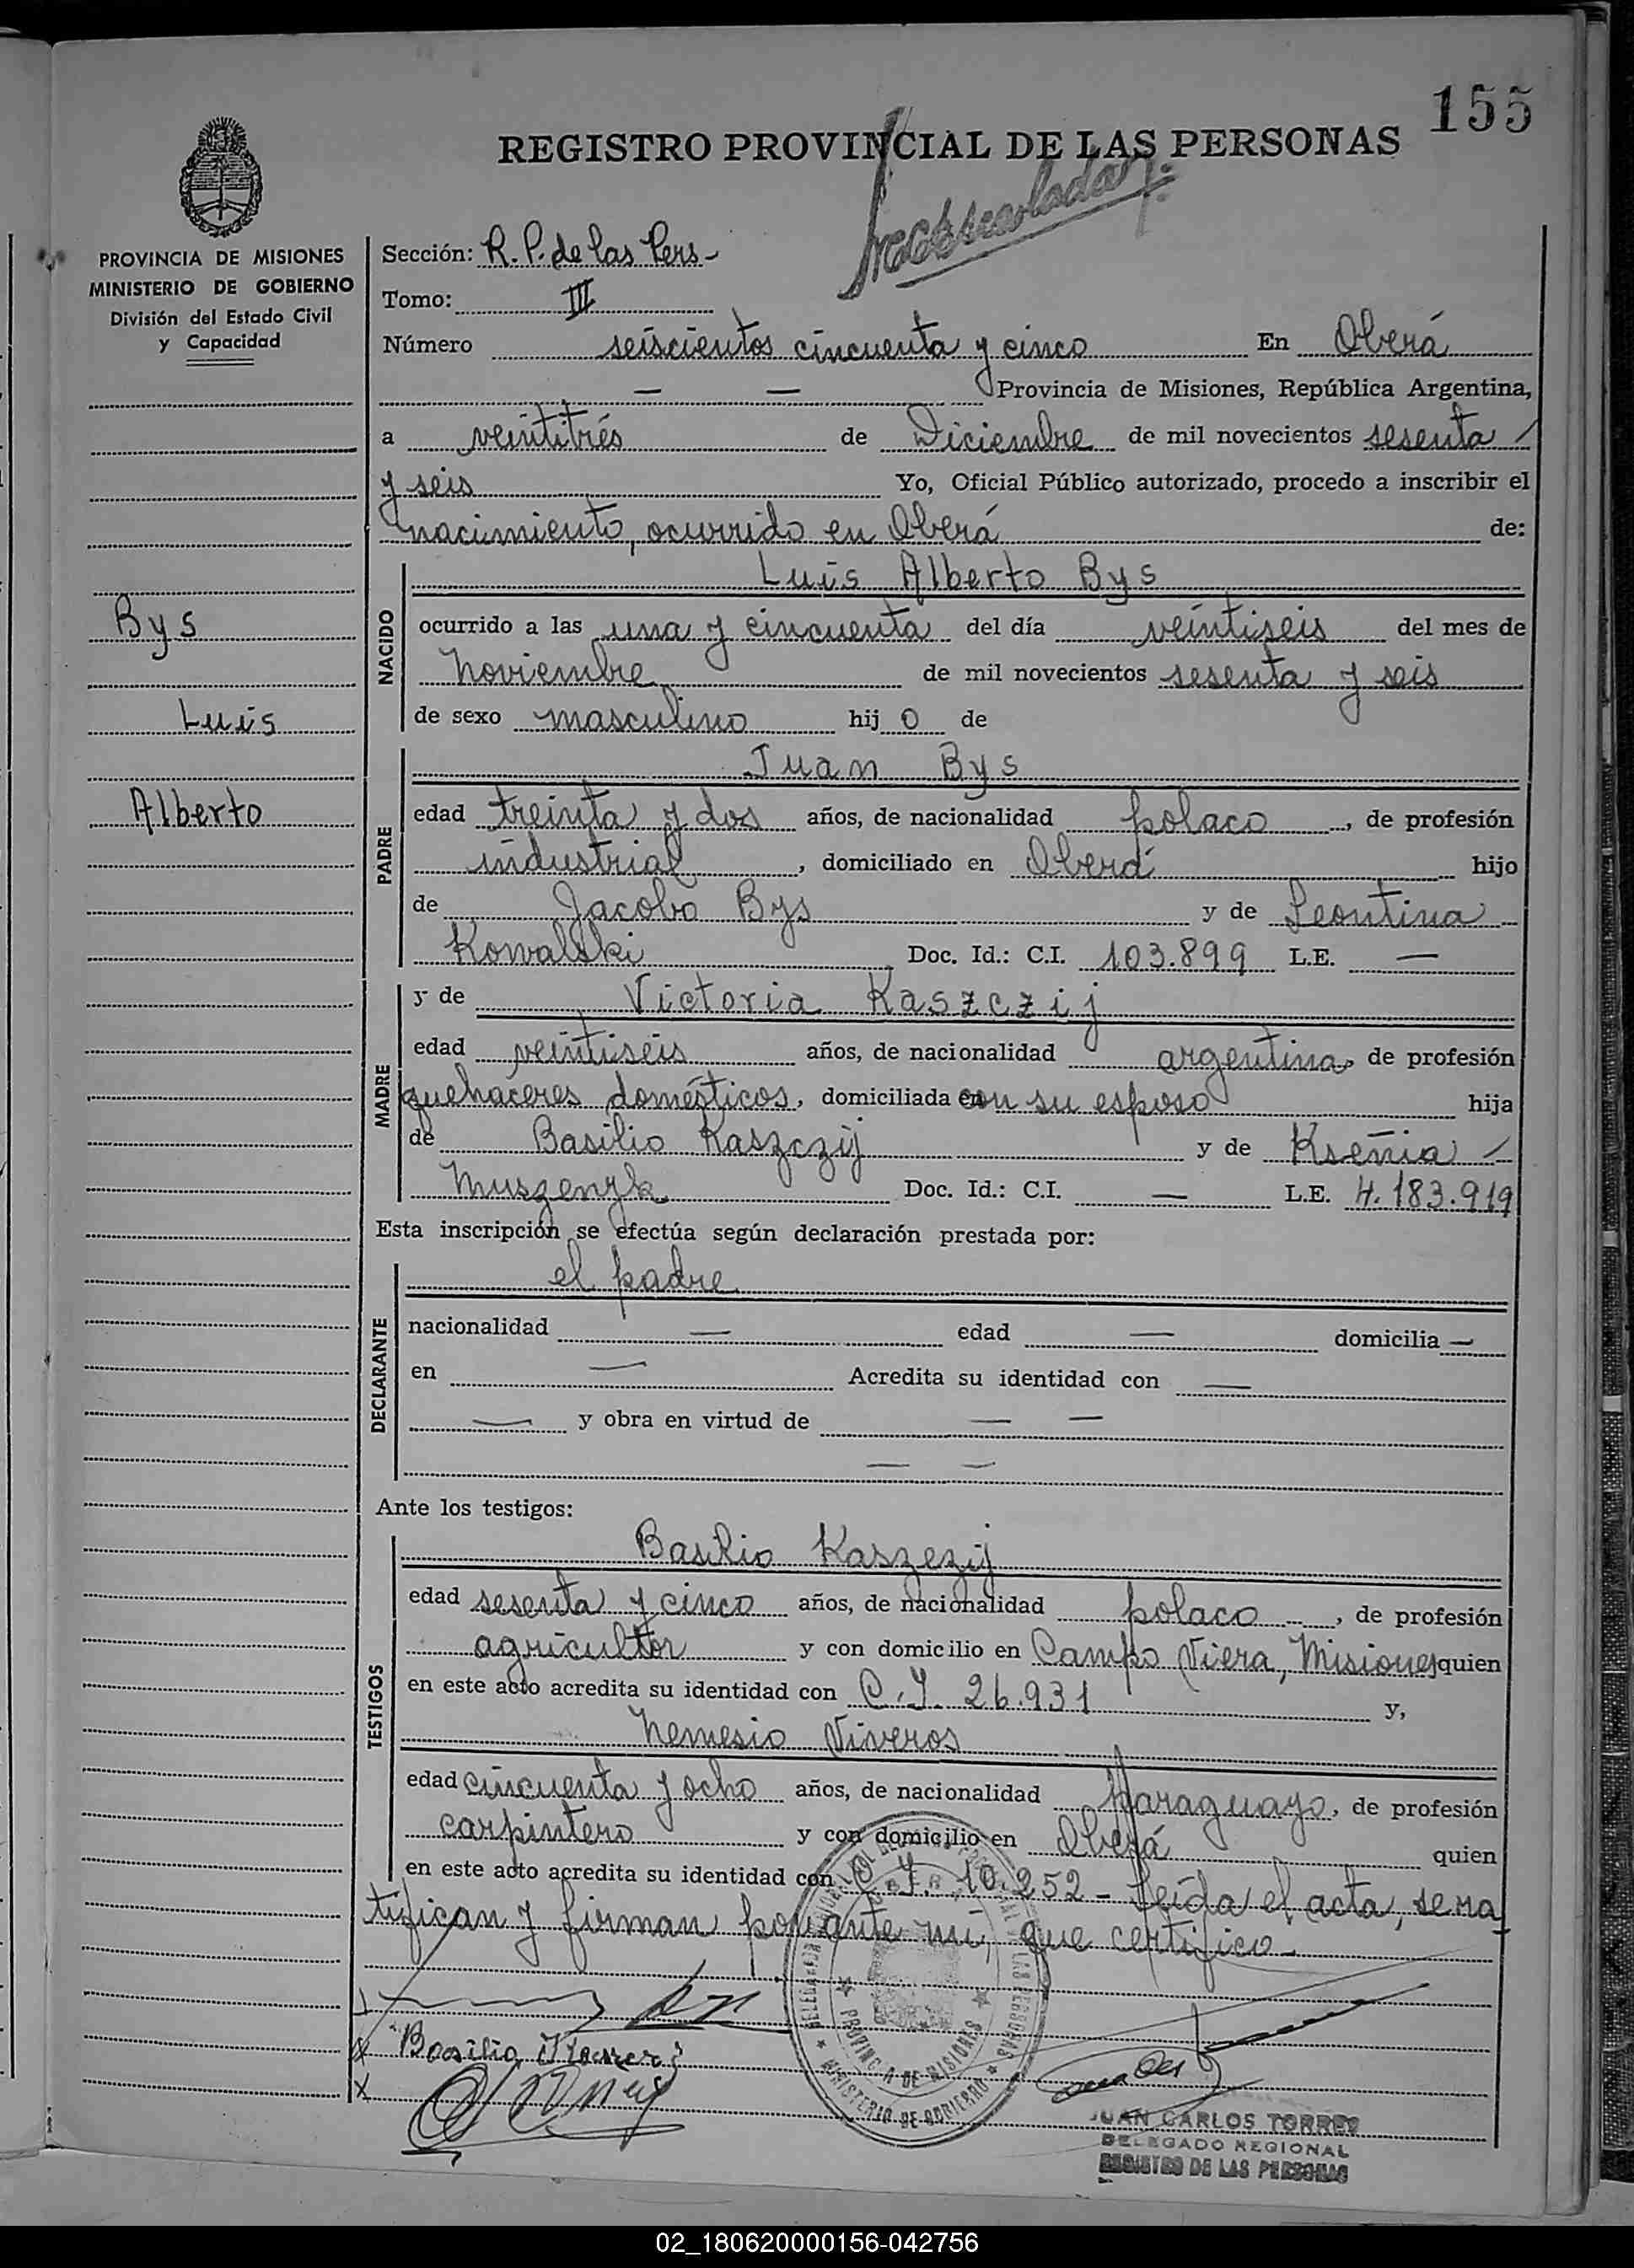 155
REGISTRO PROVINCIAL DE LAS PERSONAS
PROVINCIA DE MISIONES
MINISTERIO DE GOBIERNO
División del Estado Civil
y Capacidad
Bys
Luis
Alberto
Sección: R. P. de las Pers-
Tomo: III
Número seiscientos cincuenta y cinco En Oberá
— — Provincia de Misiones, República Argentina,
a veintitrés de Diciembre de mil novecientos sesenta
y seis Yo, Oficial Público autorizado, procedo a inscribir el
nacimiento, ocurrido en Oberá de:
NACIDO
Luis Alberto Bys
ocurrido a las una y cincuenta del día veintiseis del mes de
Noviembre de mil novecientos sesenta y seis
de sexo masculino hij o de
PADRE
Juan Bys
edad treinta y dos años, de nacionalidad polaco, de profesión
industrial, domiciliado en Oberá hijo
de Jacobo Bys y de Leontina
Kowalski Doc. Id.: C.I. 103.899 L.E. —
MADRE
y de Victoria Kaszczij
edad veintiseis años, de nacionalidad argentina, de profesión
quehaceres domésticos, domiciliada con su esposo hija
de Basilio Kaszczij y de Ksenia
Muszenyk Doc. Id.: C.I. — L.E. 4.183.919
Esta inscripción se efectúa según declaración prestada por:
DECLARANTE
el padre
nacionalidad — edad — domicilia —
en — Acredita su identidad con —
— y obra en virtud de — —
— —
Ante los testigos:
TESTIGOS
Basilio Kaszczij
edad sesenta y cinco años, de nacionalidad polaco, de profesión
agricultor y con domicilio en Campo Viera, Misiones quien
en este acto acredita su identidad con C.I. 26.931 y,
Nemesio Viveros
edad cincuenta y ocho años, de nacionalidad Paraguayo, de profesión
carpintero y con domicilio en Oberá quien
en este acto acredita su identidad con C.I. 10.252 - Leída el acta, se ra
tifican y firman por ante mí, que certifico-
PROVINCIA DE MISIONES
MINISTERIO DE GOBIERNO
Basilio
JUAN CARLOS TORRES
DELEGADO REGIONAL
REGISTRO DE LAS PERSONAS
02_180620000156-042756